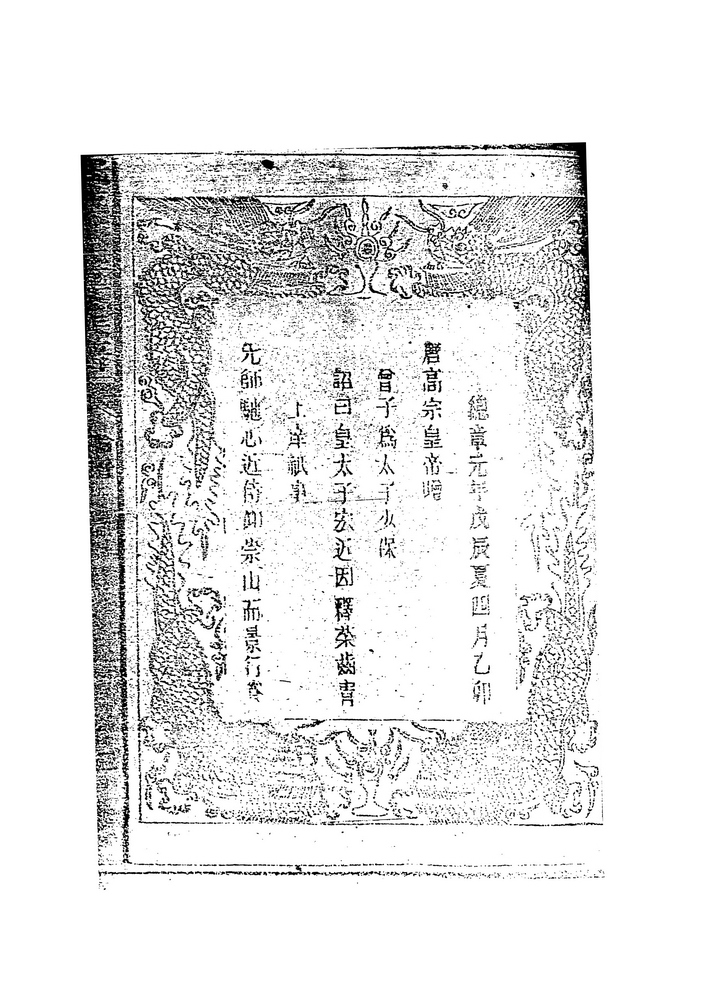 總章元年戊辰夏四月乙卯
唐高宗皇帝贈
曾子爲太子少保
詔曰皇太子宏近因釋菜齒胄
上庠祇事
先師馳心近侍仰崇山而景行